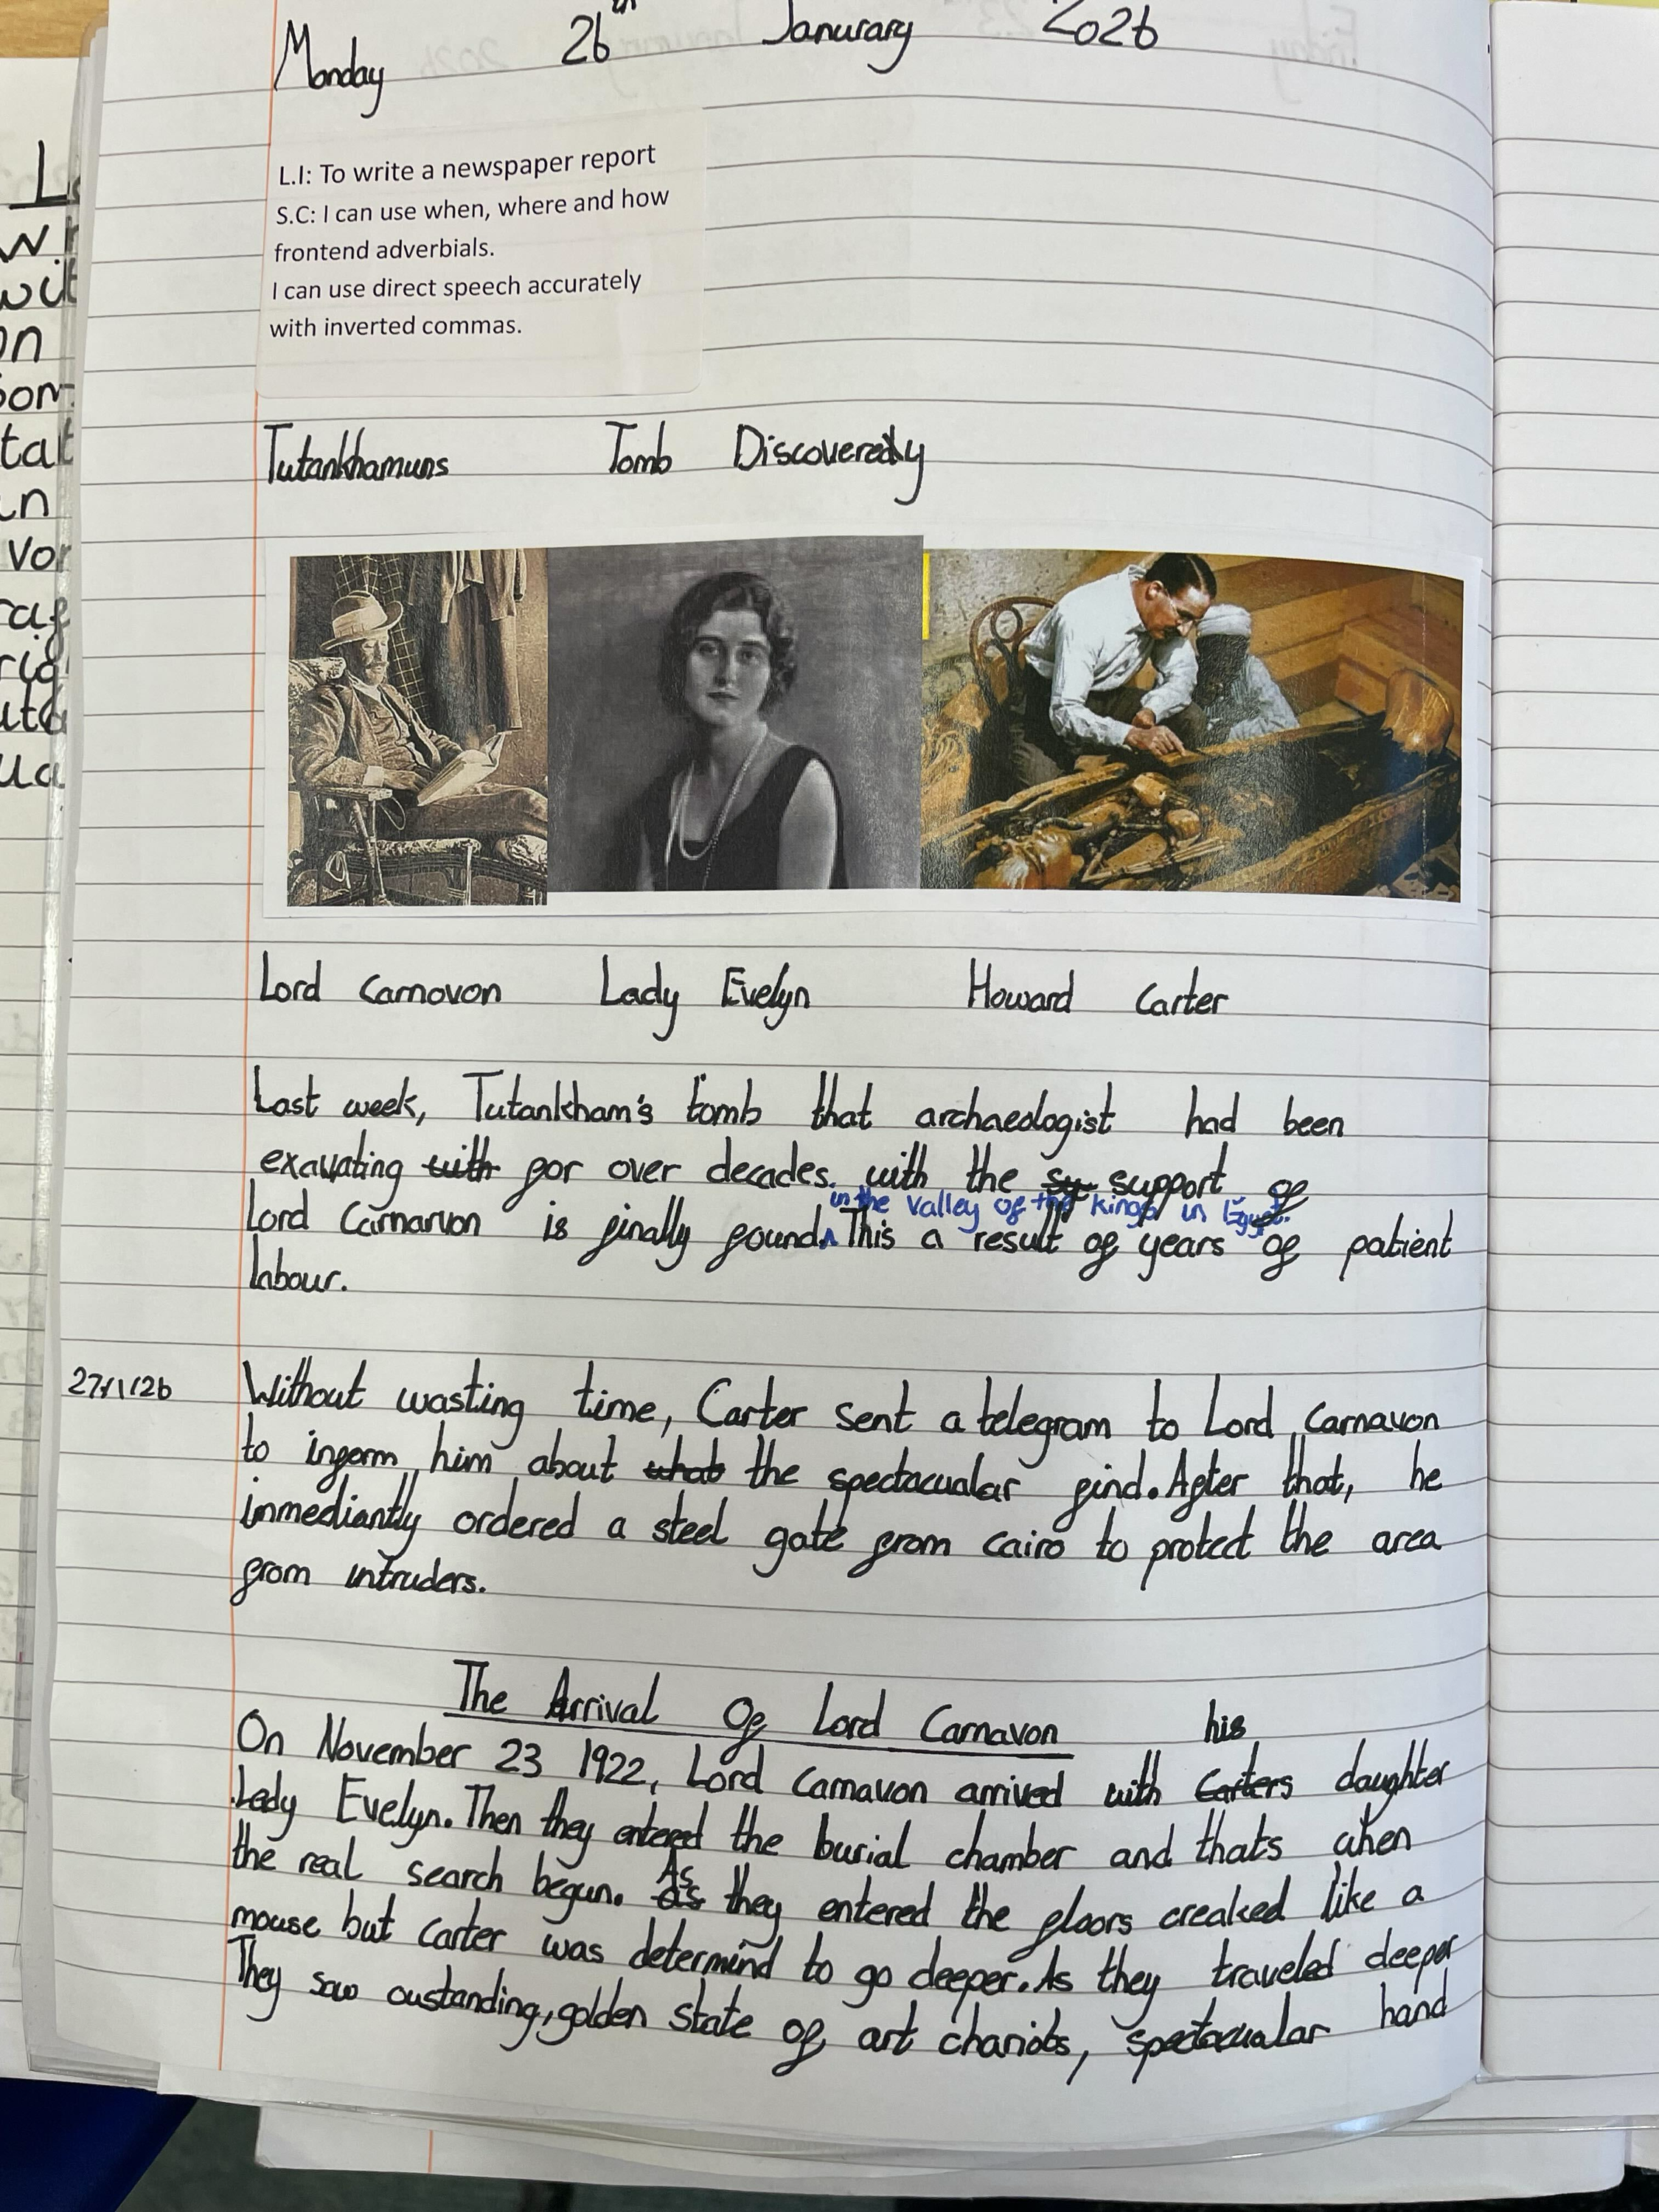 Monday 26th Janurary 2026
L.I: To write a newspaper report
S.C: I can use when, where and how
frontend adverbials.
I can use direct speech accurately
with inverted commas.
Tutankhamuns Tomb Discoveredy
Lord Carnovon Lady Evelyn Howard Carter
Last week, Tutankham's tomb that archaeologist had been
exavating with for over decades. with the sy support of
in the valley of the kings in Egypt.
Lord Carnarvon is finally found. This a result of years of patient
labour.
27/1/26
Without wasting time, Carter sent a telegram to Lord Carnavon
to inform him about what the spectacualar find. After that, he
immediantly ordered a steel gate from cairo to protect the area
from intruders.
The Arrival Of Lord Carnavon
his
On November 23 1922, Lord Carnavon arrived with Carters daughter
Lady Evelyn. Then they entered the burial chamber and thats when
the real search begun. as As they entered the floors creaked like a
mouse but Carter was determind to go deeper. As they traveled deeper
They saw oustanding, golden state of art chariots, spectacualar hand